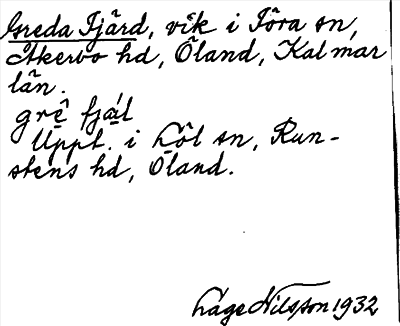 Greda Fjärd, vik i Föra sn,
Åkerbo hd, Öland, Kalmar
län.
grê fjál
Uppt. i Löt sn, Run-
stens hd, Öland.
Låge Nilsson 1932